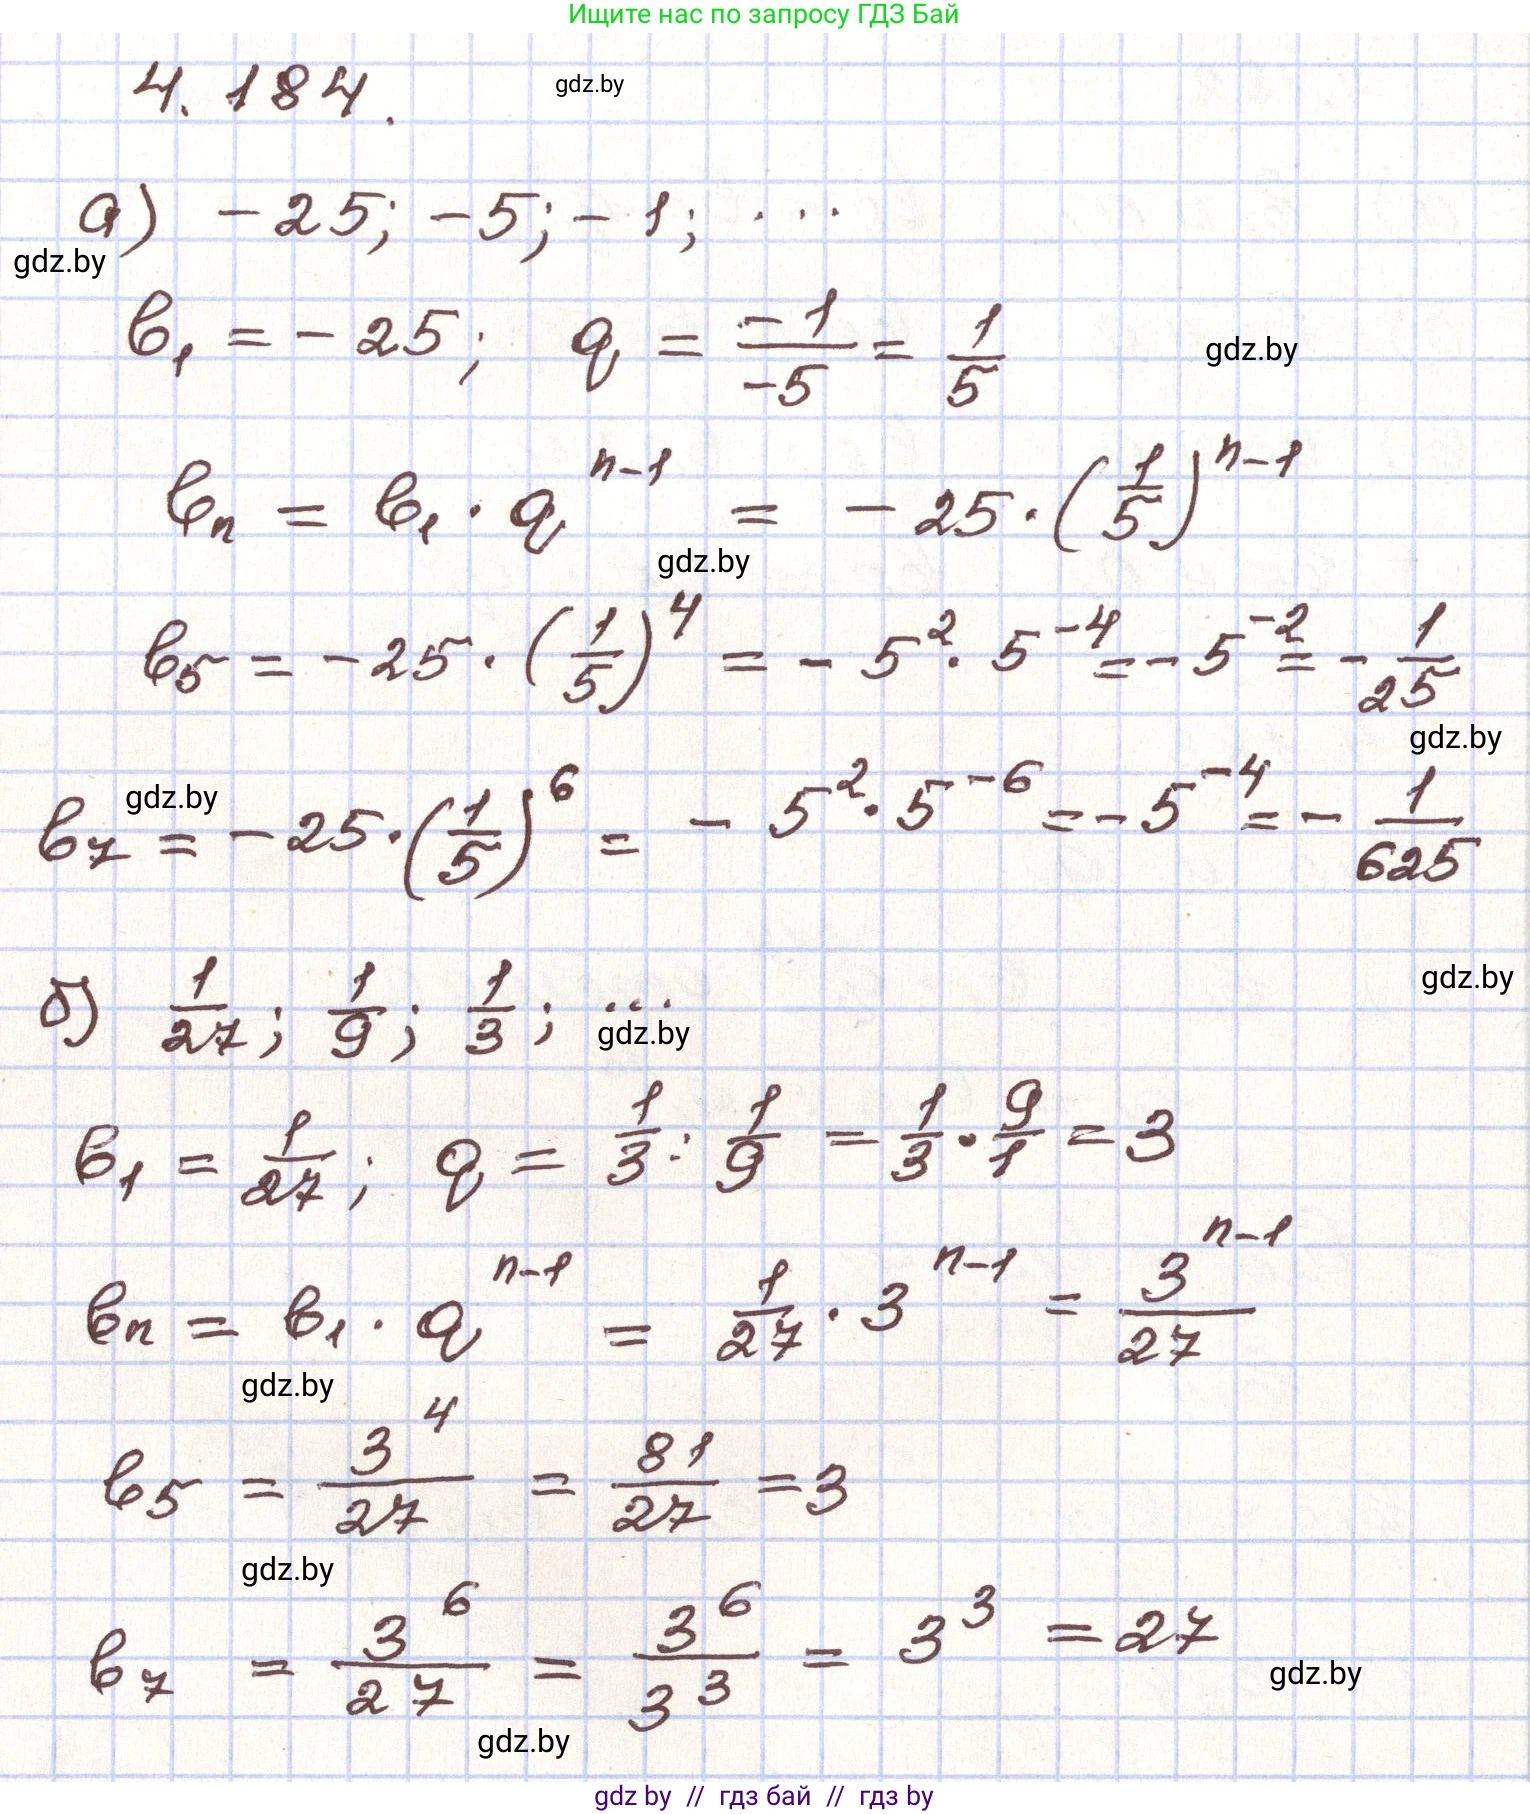 Ищите нас по запросу ГДЗ Бай
4.184. gdz.by
а) -25; -5; -1; ...
gdz.by
b₁ = -25; q = -1/-5 = 1/5 gdz.by
bₙ = b₁ · qⁿ⁻¹ = -25 · (1/5)ⁿ⁻¹
gdz.by
b₅ = -25 · (1/5)⁴ = -5² · 5⁻⁴ = -5⁻² = -1/25
gdz.by
gdz.by
b₇ = -25 · (1/5)⁶ = -5² · 5⁻⁶ = -5⁻⁴ = -1/625
gdz.by
б) 1/27; 1/9; 1/3; ...
gdz.by
b₁ = 1/27; q = 1/3 : 1/9 = 1/3 · 9/1 = 3
bₙ = b₁ · qⁿ⁻¹ = 1/27 · 3ⁿ⁻¹ = 3ⁿ⁻¹/27
gdz.by
b₅ = 3⁴/27 = 81/27 = 3
gdz.by
b₇ = 3⁶/27 = 3⁶/3³ = 3³ = 27
gdz.by
gdz.by
gdz by // гдз бай // гдз by